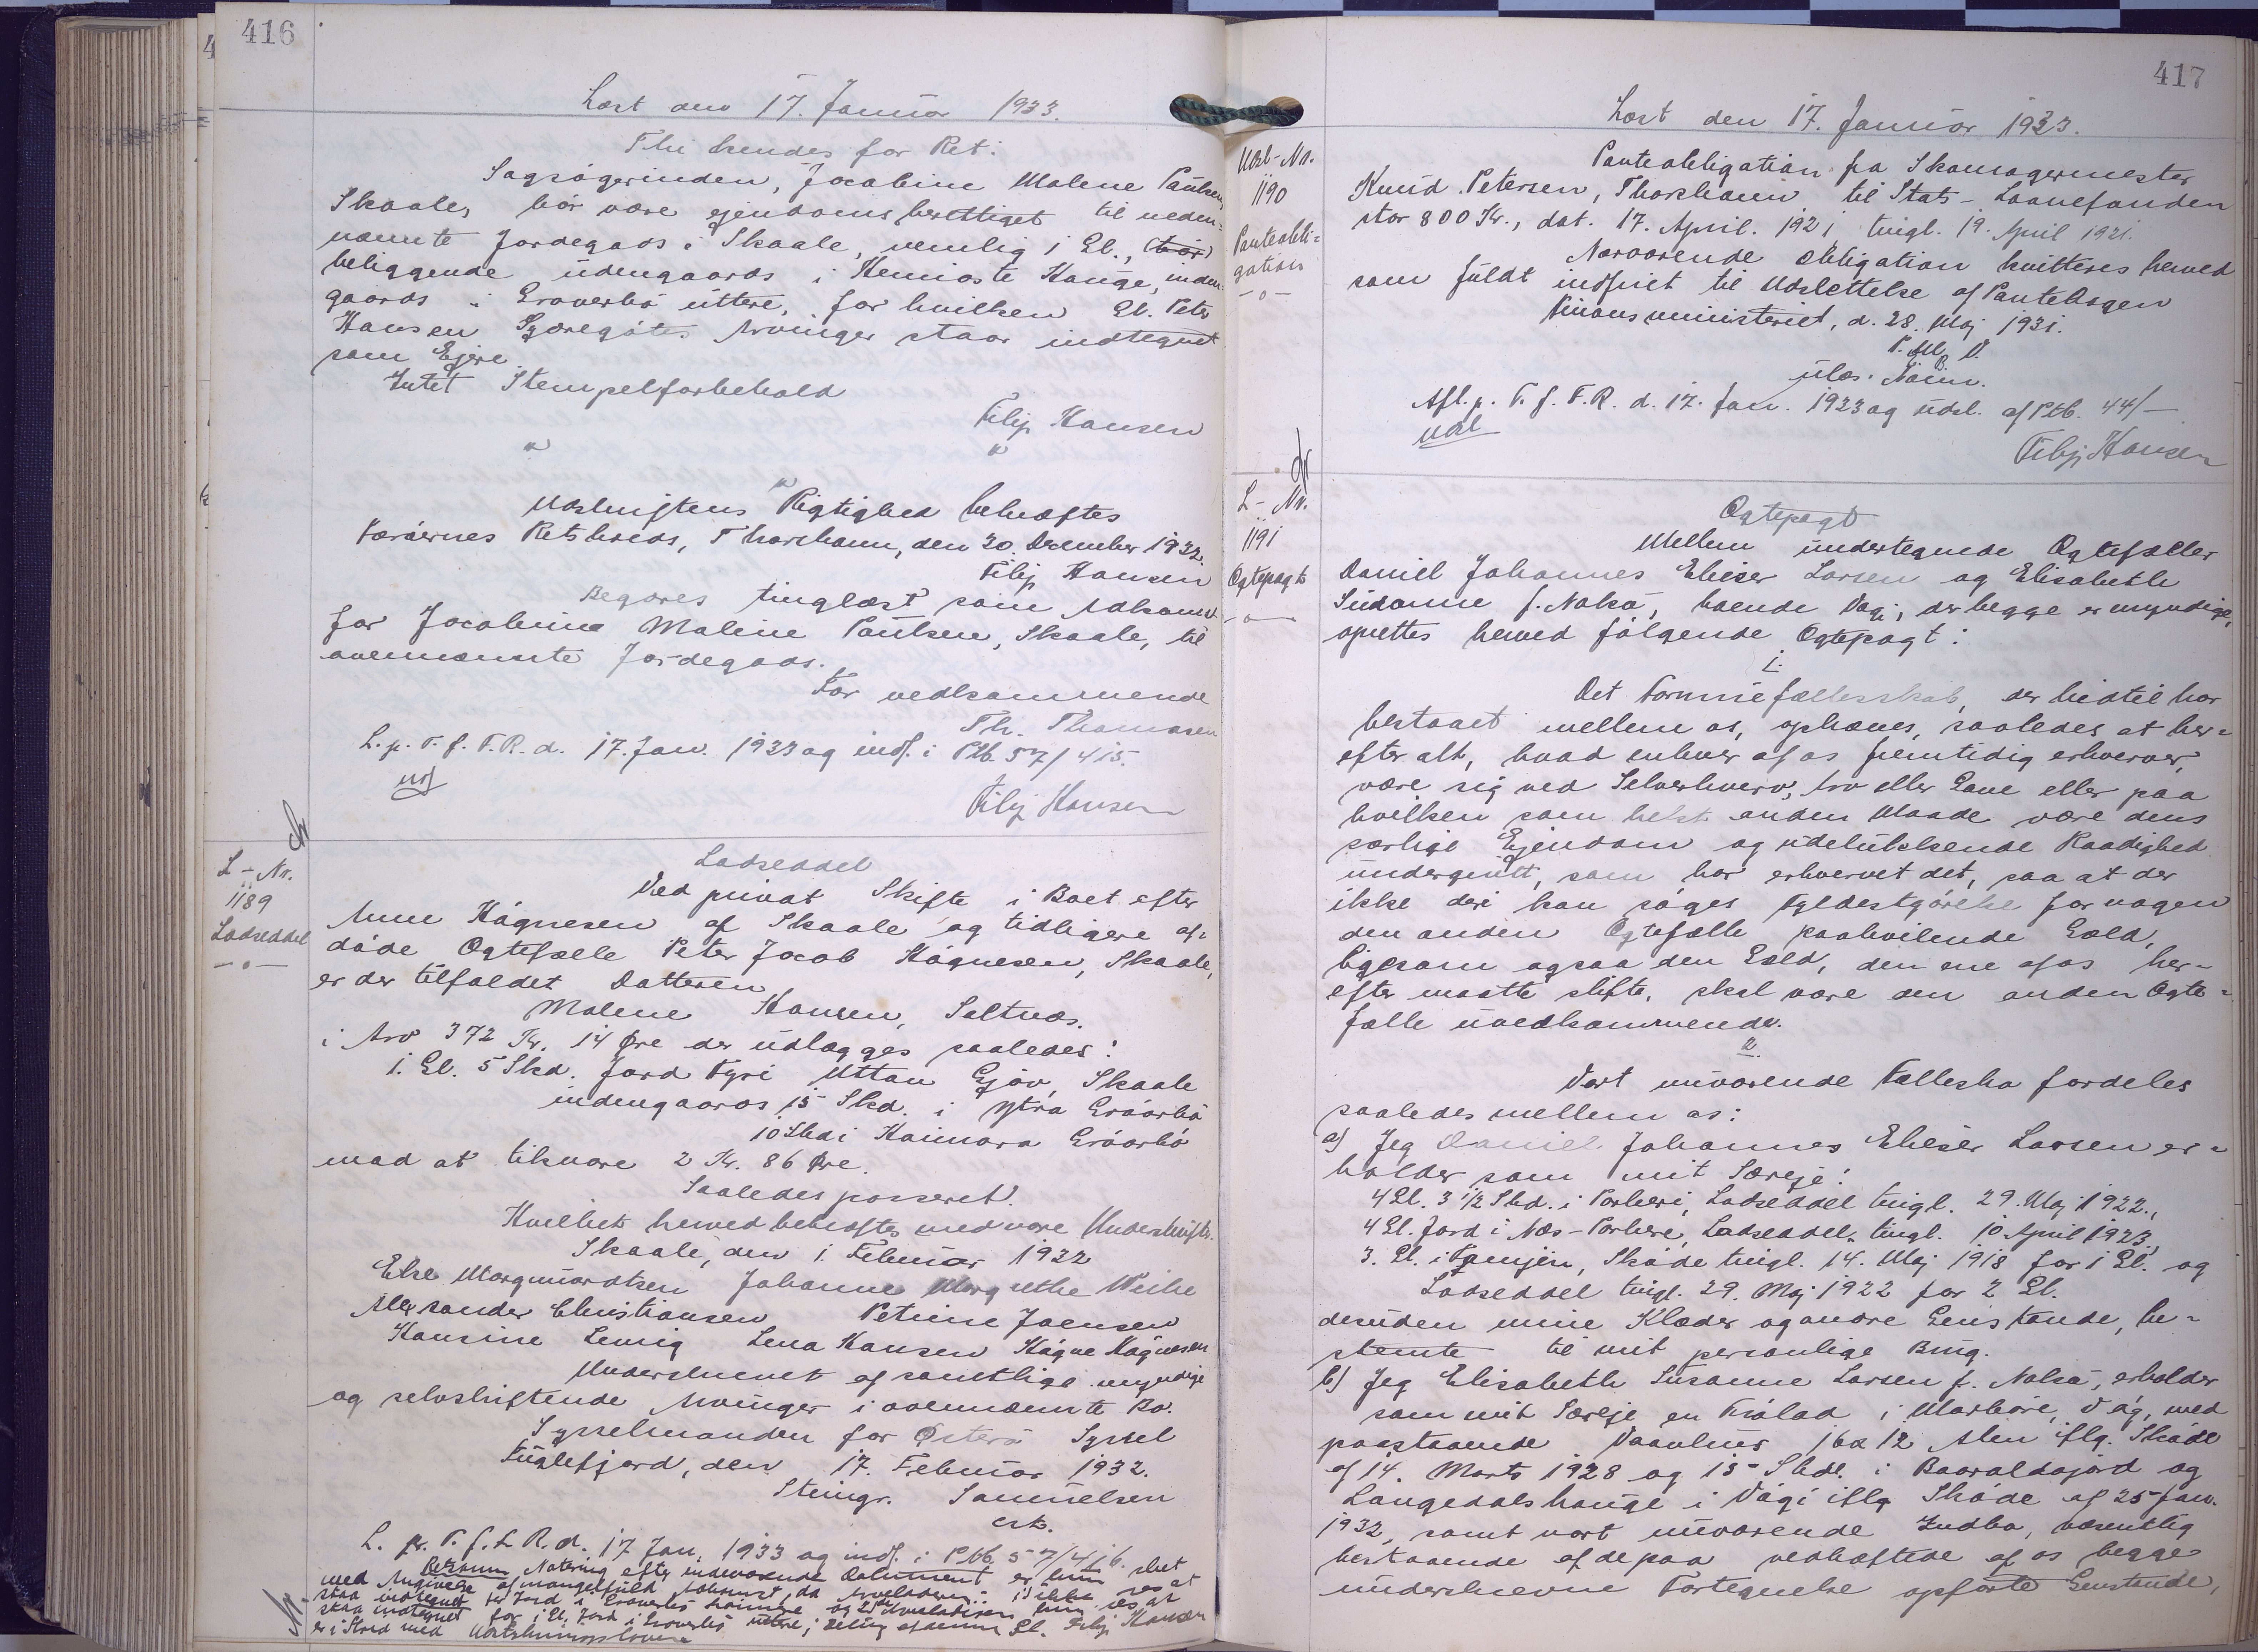 416
Læst den 17. Januar 1933.
Thi kendes for Ret:
Sagsøgerinden, Jocobine Malene Paulsen,
Skaale, bør være ejendomsberettiget til neden-
nævnte Jordegods i Skaale, nemlig 1 Gl., (bør)
beliggende udengaards i Heimoste Hauge, inden-
gaards i Gróverbø uttere, for hvilken Gl. Peter
Hansen Arvinger staar indtegnet
som Ejere.
Intet Stempelforbehold
Filip Hansen
Udskriftens Rigtighed bekræftes
Færøernes Retskreds, Thorshavn, den 30. December 1932.
Filip Hansen
Begæres tinglæst som Adkomst
for Jocobina Malene Paulsen, Skaale, til
ovennævnte Jordegods.
For vedkommende
Th. Thomasen
L. p. T. f. F. R. d. 17. Jan. 1933 og indf. i Ptb. 57/415.
Filip Hansen
L-Nr.
1189
Lodseddel
Lodseddel
Ved privat Skifte i Boet efter
Anne Høgnesen af Skaale og tidligere af-
døde Ægtefælle Peter Jacob Høgnesen, Skaale,
er der tilfaldet Datteren
Malene Hansen, Saltnæs.
i Arv 372 Kr. 14 Øre der udlægges saaledes:
1. Gl. 5 Skd. Jord Fyri Uttan Gjóv, Skaale
indengaards 15 Skd. i Ytra Gróarbø
10 Skd i Haimara Gróarbø
mod at tilsvare 2 Kr. 86 Øre.
Saaledes passeret.
Hvilket herved bekræftes med vore Underskrifter.
Skaale, den 1. Februar 1932
Else Marqmardtsen Johanne Margrethe Weihe
Alexsander Christiansen Petrine Joensen
Hansine Lena Hansen Høgne Høgnesen
Underskrevet af samtlige myndige
og selvskiftende Arvinger i ovennævnte Bo.
Sysselmanden for Østerø Syssel
Fuglefjord, den 17. Februar 1932.
Steingr. Samuelsen
cst.
L. p. T. f. F. R. d. 17 Jan. 1933 og indf. i Ptb. 57/416.
med Angivelse af mangelfuld Adkomst, da
er i Strid med Udstykningsloven
Filip Hansen
417
Læst den 17. Januar 1933.
Udsl-Nr.
1190
Panteobli-
gation
Panteobligation fra Skomagermester
Knud Petersen, Thorshavn, til Stats-Laanefonden
stor 800 Kr., dat. 17. April. 1921 tingl. 19. April 1921.
Nærværende Obligation kvitteres herved
som fuldt indfriet til Udslettelse af Pantebogen
Finansministeriet, d. 28. Maj 1931.
P. M. V.
ulæs. Navn.
Afl. p. T. f. F. R. d. 17. Jan. 1933 og udsl. af Ptb. 44/-
Filip Hansen
L-Nr.
1191
Ægtepagt
Ægtepagt
Mellem undertegnede Ægtefæller
Daniel Johannes Elieser Larsen og Elisabeth
Susanne f. Nolsø, boende Vági, der begge er myndige,
oprettes herved følgende Ægtepagt:
I.
Det Formuefællesskab, der hidtil har
bestaaet mellem os, ophæves, saaledes at her-
efter alt, hvad enhver af os fremtidig erhverver,
være sig ved Selverhverv, Arv eller Gave eller paa
hvilken som helst anden Maade være dens
særlige Ejendom og udelukkende Raadighed
undergivet, som har erhvervet det, saa at der
ikke deri kan søges Fyldestgørelse for nogen
den anden Ægtefælle paahvilende Gæld,
ligesom ogsaa den Gæld, den ene af os her-
efter maatte stifte, skal være den anden Ægte-
fælle uvedkommende.
II.
Vort nuværende Fællesbo fordeles
saaledes mellem os:
a) Jeg Daniel Johannes Elieser Larsen er-
holder som mit Særeje:
4 Gl. 3 1/2 Skd. i Porkeri, Lodseddel tingl. 29. Maj 1922.,
4 Gl. Jord i Næs-Porkere, Lodseddel, tingl. 10 April 1923,
3. Gl. i Famjin, Skøde tingl. 14. Maj 1918 for 1 Gl. og
Lodseddel tingl. 29. Maj 1922 for 2 Gl.
desuden mine Klæder og andre Genstande, be-
stemte til mit personlige Brug.
b) Jeg Elisabeth Susanne Larsen f. Nolsø, erholder
som mit Særeje en Trólad i Marbøre, Vág, med
paastaaende Vaanhus 16 x 12 Alen iflg. Skøde
af 14. Marts 1928 og 15 Skd. i og
Langedalshauge i Vági iflg Skøde af 25 Jan.
1932, samt vort nuværende Indbo, væsentlig
bestaaende af de paa vedhæftede af os begge
underskrevne Fortegnelse opførte Genstande,